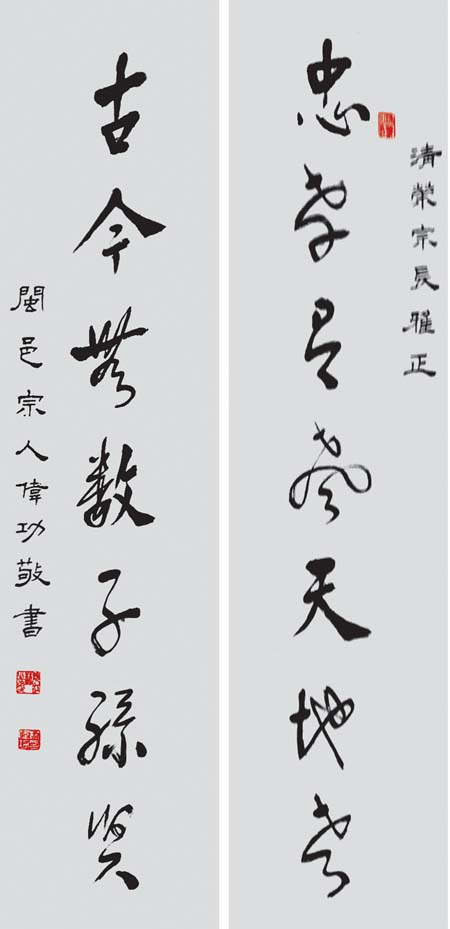 清榮宗長雅正
忠孝有聲天地老
古今無数子孫賢
閩邑宗人偉功敬書